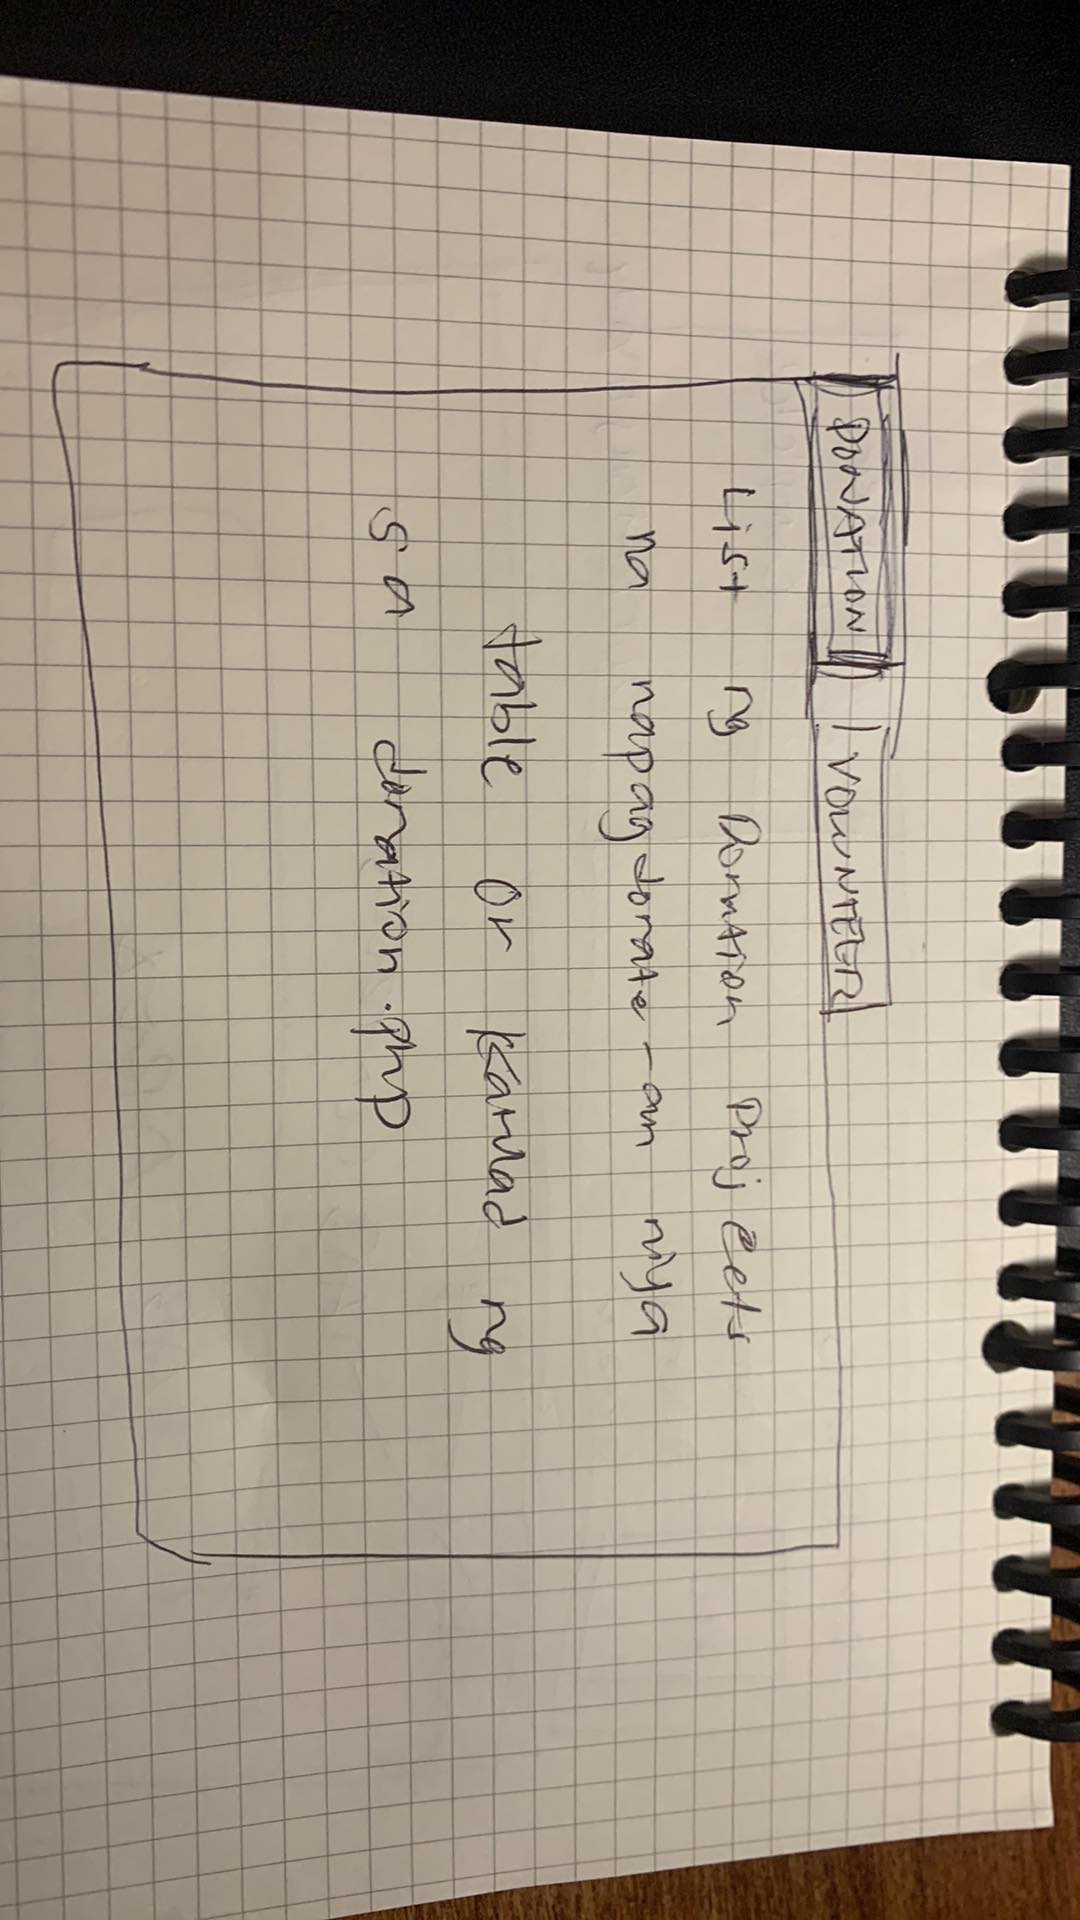 DONATION VOLUNTEER
List ng Donation Projects
na napagdonate-an niya
table or Katulad ng
sa donation.php